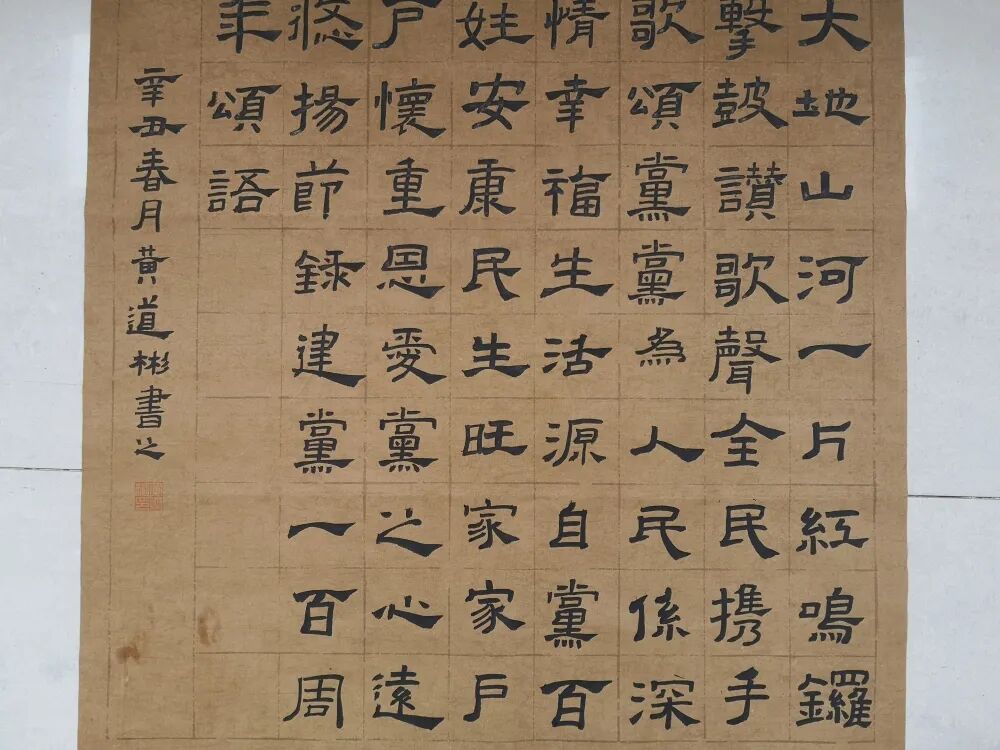 大地山河一片紅鳴鑼
擊鼓讃歌聲全民携手
歌頌黨黨為人民係深
情幸福生活源自黨百
姓安康民生旺家家戶
戶懷重恩愛黨之心遠
悠揚節録建黨一百周
年頌語
辛丑春月黃道彬書之